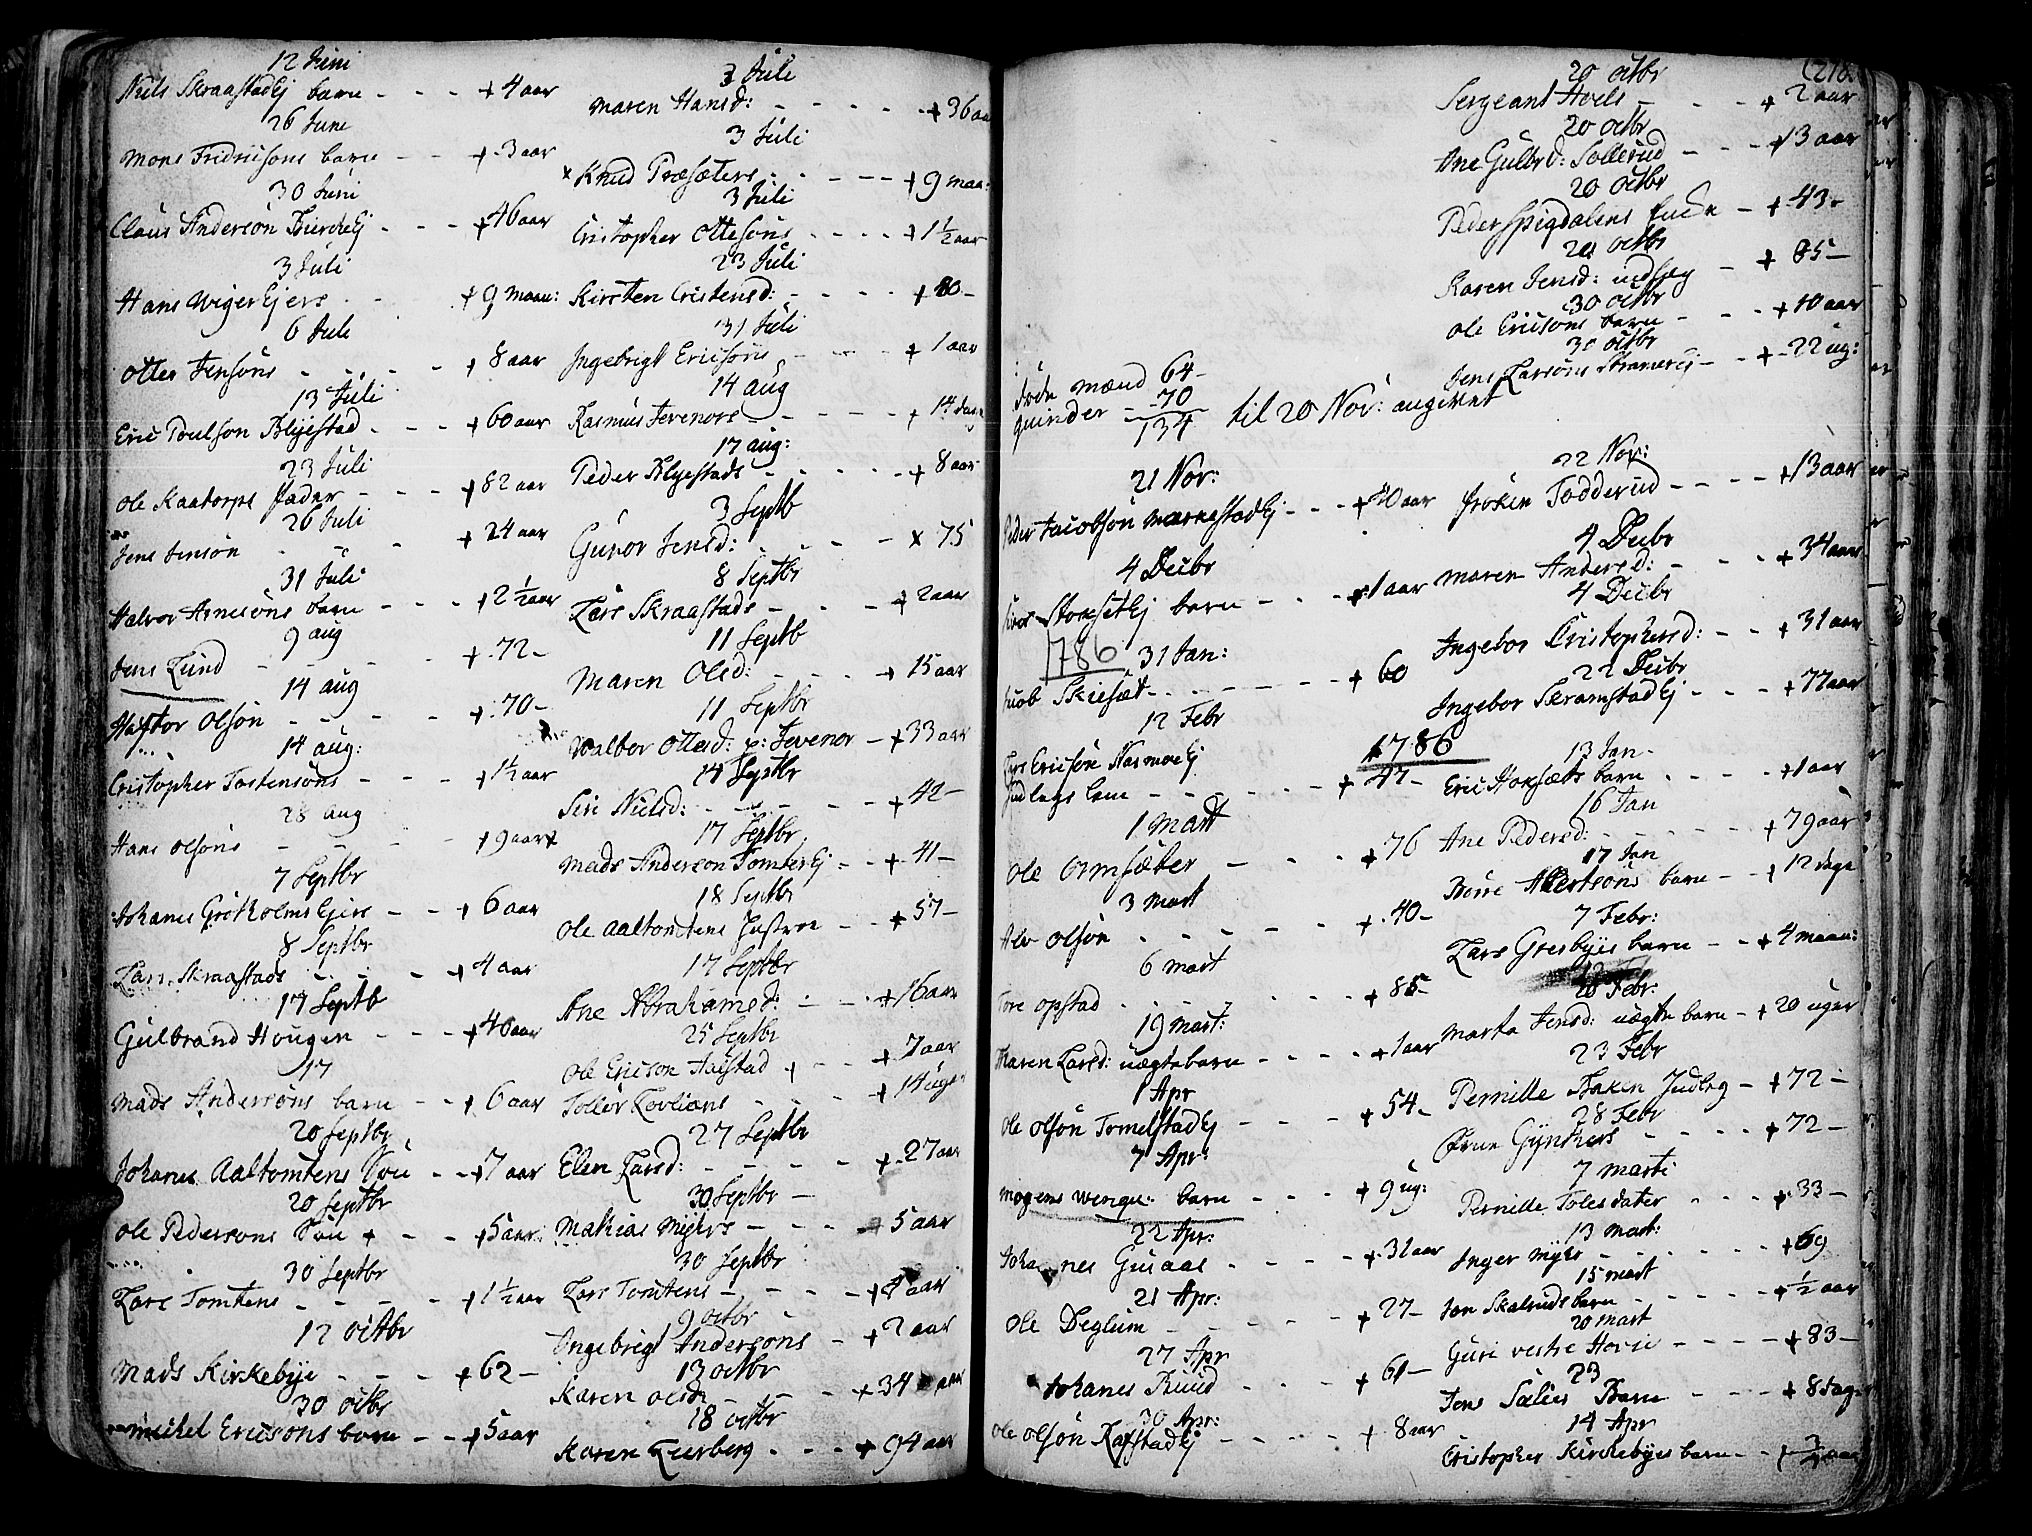 12 Juni
Niels Skraastadej barn - - - + 4 aar
26 Juni
Mons Fridricsons barn - - + 3 aar
30 Juni
Claus Anderson - - - + 46 aar
3 Juli
Hans - + 9 maan:
6 Juli
Otter Jensöns - - - - + 8 aar
13 Juli
Eric Poulson Blyestad - - - + 60 aar
23 Juli
Ole Kaatorps fader - - - + 82 aar
26 Juli
Jens Jensön - - - + 24 aar
31 Juli
Halvor Arnesöns barn - - - + 2 1/2 aar
9 aug
Jens Lund - - - + 72 -
14 aug
Haftor Olsön - - - - + 70 -
14 aug:
Cristopher Torstensöns - - - + 1 1/2 aar
28 aug
Hans Olsöns - - - + 9 aar
7 Septbr
Johanes - - + 6 aar
8 Septbr
Lars Skraastads - - - + 4 aar
17 Septb
Gulbrand Hougen - - - + 40 aar
17
Mads Andersöns barn - - + 6 aar
20 Septbr
Johanes Aaltomtens Sön - - + 7 aar
20 Septbr
Ole Pedersöns Sön + - - + 5 aar
30 Septbr
Lars Tomtens - - - - + 1 1/2 aar
12 octbr
Mads Kirkebye - - - + 62 -
30 octbr
Michel Ericsöns barn - - + 5 aar
3 Juli
Maren Hansd: - - - - - + 36 aar
3 Juli
x Knud Præsæters - - - - + 9 maa:
3 Juli
Cristopher Ottesöns - - - - + 1 1/2 aar
23 Juli
Kirsten Cristensd: - - - - + 80 -
31 Juli
Ingebrigt Ericsöns - - - - + 1 aar
14 aug
Rasmus Jevenors - - - - + 14 dage
17 aug:
Peder Blyestads - - - - - + 8 aar
3 Septb
Gunor Jensd: - - - - x 75
8 Septbr
Lars Skraastads - - - - + 2 aar
11 Septb
Maren Olsd: - - - - + 15 aar
11 Septbr
Walbor Ottersd: p: Jevenor - + 33 aar
14 Septbr
Siri Nielsd: - - - - - + 42 -
17 Septbr
Mads Anderson Tomterej - - + 41 -
18 Septbr
Ole Aaltomtens Hustroe - - + 57 -
17 Septbr
Ane Abrahamsd: - - - + 16 aar
25 Septbr
Ole Ericson + - - + 7 aar
- - - + 14 uger
27 Septbr
Elen Larsd: - - - - - + 27 aar
30 Septbr -
Mathias Myhrs - - - - + 5 aar
30 Septbr
Lars Tomtens - - - - - + 4 aar
9 octbr
Ingebrigt Andersöns - + 2 aar
13 octbr
Karen olsd: - - - - + 34 aar
18 octbr
Karen - - - + 94 aar
døde mænd 64 -
quinder - 70
134 til 20 Nov: angivet
21 Nov:
Peder Jacobson - - - + 70 aar
4 Decbr
barn - - - + 1 aar
1786 31 Jan:
Jacob - - - - - + 60
12 Febr
Lars Ericsön
- - - - - + 47 -
1 Mart
Ole Ormsæter - - - - + 76
3 Mart
Alv Olsön - - - - - + 40 -
6 Mart
Tore Opstad - - - - - + 85 -
19 Mart:
Maren Larsd: uægte barn - - - - + 1 aar
1 Apr
Ole Olsön Tomelstadej - - - + 54 -
7 Apr:
Mogens Wengs: barn - - - + 9 ug:
22 Apr:
Johannes - - - - + 31 aar
21 Apr:
Ole Deglum - - - - - + 27 -
27 Apr
Johanes Ruud - - - + 61 -
30 Apr:
Ole Olsön - - - - + 8 aar
(218.
20 octbr
Sergeant Hoels - - - - + 2 aar
20 octbr
Ane Gulbrd: Sollerud - - - + 13 aar
20 octbr
Peder Spigdalens Encke - + 43 -
20 octbr
Karen Jensd: - + 85 -
30 octbr
Ole Ericsöns barn - - - + 10 aar
30 octbr
Jens Larsöns - - + 22 ug:
22 Nov:
Todderud - - - - + 13 aar
4 Decbr
Maren Andersd: - - - + 34 aar
4 Decbr
Ingebor Cristophersd: - - + 31 aar
22 Decbr
Ingebor Skramstadej - - - + 77 aar
1786 13 Jan -
Eric barn - - - - + 1 aar
16 Jan
Ane Pedersd: - - - - - + 79 aar
17 Jan
barn - - + 12 dage
7 Febr:
Lars Gresbyes barn - - + 4 maan:
20 Febr:
Marta Jensd: uægte barn - + 20 uger
23 Febr
Pernille - + 72 -
28 Febr
Gÿnthers - - - - + 72 -
7 Marti
Pernille Tolesdater - - - + 33 -
13 Mart:
Inger Myhr - - - - - + 69
15 Mart
Jon barn - - - - - + 1/2 aar
20 Mart
Guri vestre Hovie - - - - + 83 -
23
Jens Barn - - - - + 8 dage
14 Apr
Cristopher Kirkebyes barn - - + 3/4 aar